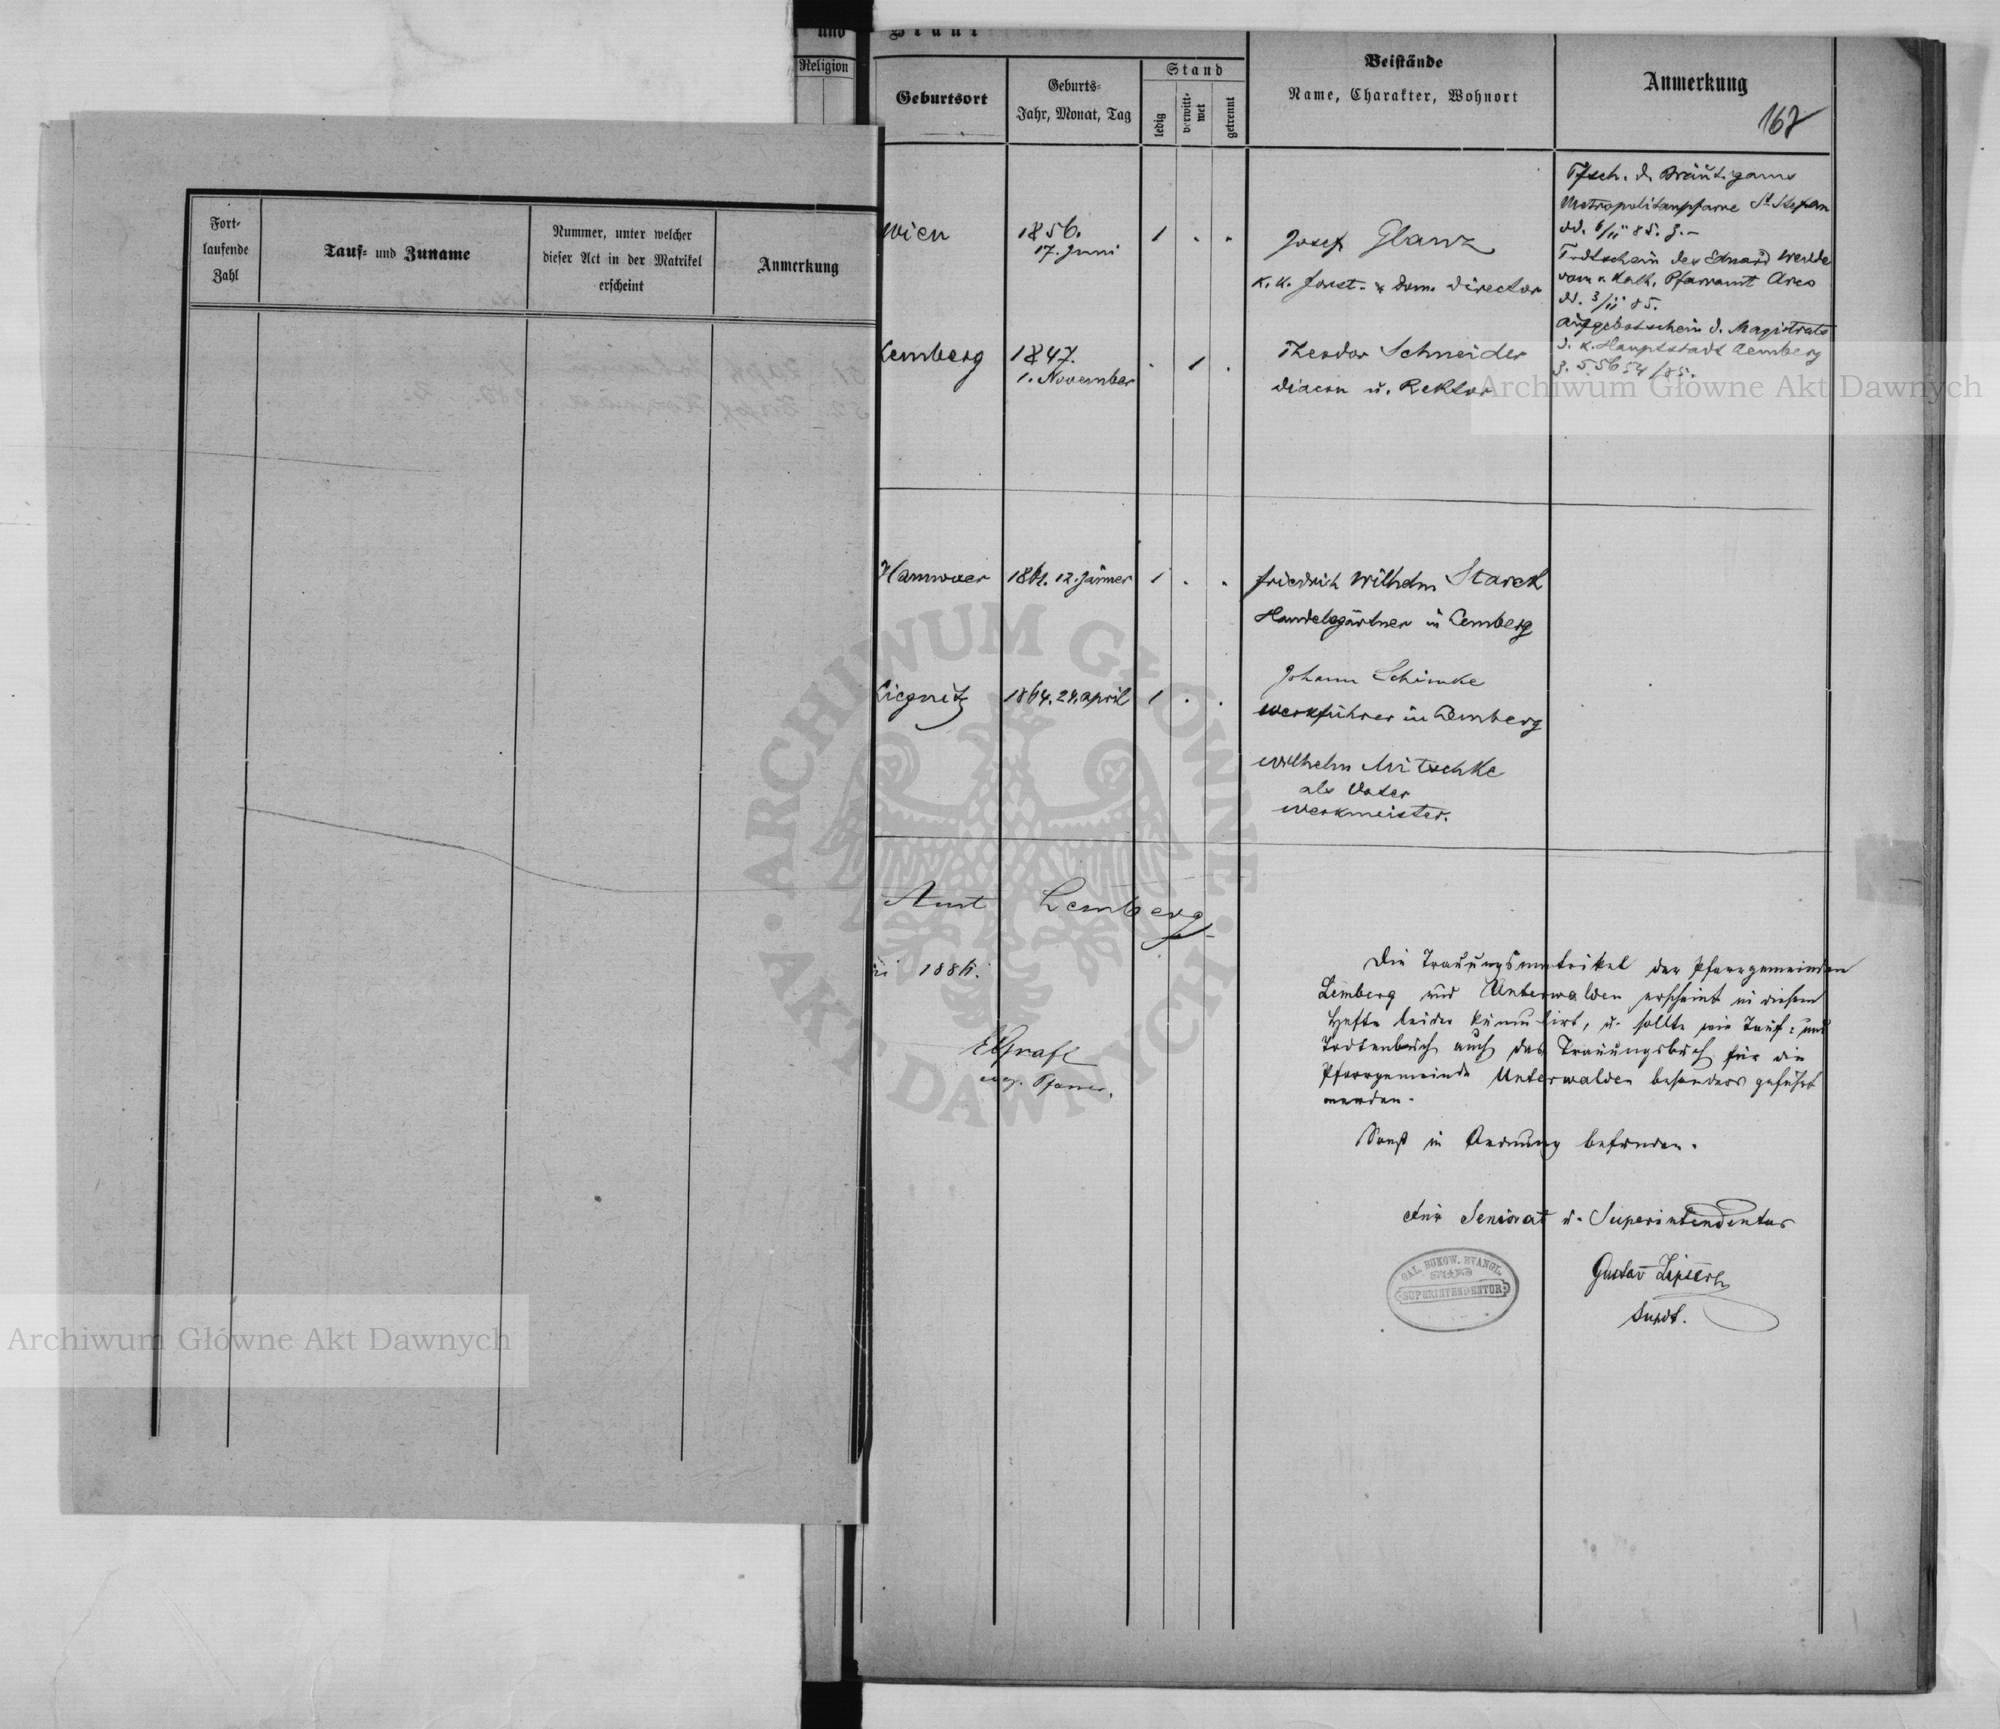 und
Religion
Braut
Geburtsort
Geburts-
Jahr, Monat, Tag
Stand
ledig
verwitt-
wet
getrennt
Beistände
Name, Charakter, Wohnort
Anmerkung
167
Fort-
laufende
Zahl
Tauf- und Zuname
Nummer, unter welcher
dieser Act in der Matrikel
erscheint
Anmerkung
Wien
1856.
17. Juni
1 . .
Josef Glanz
k. k. Forst- & Dom. Director
Tfsch. d. Bräutigams
Metropolitanpfarre St. Stefan
dd. 6/11 85. Z. –
Todtschein des Eduard
vom r. kath. Pfarramt Arco
dd. 3/11 85.
Aufgebotschein d. Magistrats
d. k. Hauptstadt Lemberg
Z. 55654/85.
Lemberg
1847.
1. November
. 1 .
Theodor Schneider
Diacon u. Rektor
Hannover
1861. 12. Jänner
1 . .
Friedrich Wilhelm Starck
Handelsgärtner in Lemberg
Liegnitz
1864. 24. April
1 . .
Johann Schimke
Werkführer in Lemberg
Wilhelm Nitschke
als Vater
Werkmeister.
Amt Lemberg
1886.
Grafl
ev. Pfarrer.
Die Trauungsmatrikel der Pfarrgemeinden
Lemberg und Unterwalden erscheint in diesem
Hefte leider kumulirt, u. sollte wie Tauf- und
Todtenbuch auch das Trauungsbuch für die
Pfarrgemeinde Unterwalden besonders geführt
werden.
Sonst in Ordnung befunden.
Für Seniorat u. Superintendentur
Gustav
Supdt.
GAL. BUKOW. EVANGL.
SUPERINTENDENTUR
Archiwum Główne Akt Dawnych
Archiwum Główne Akt Dawnych
ARCHIWUM GŁÓWNE
AKT DAWNYCH